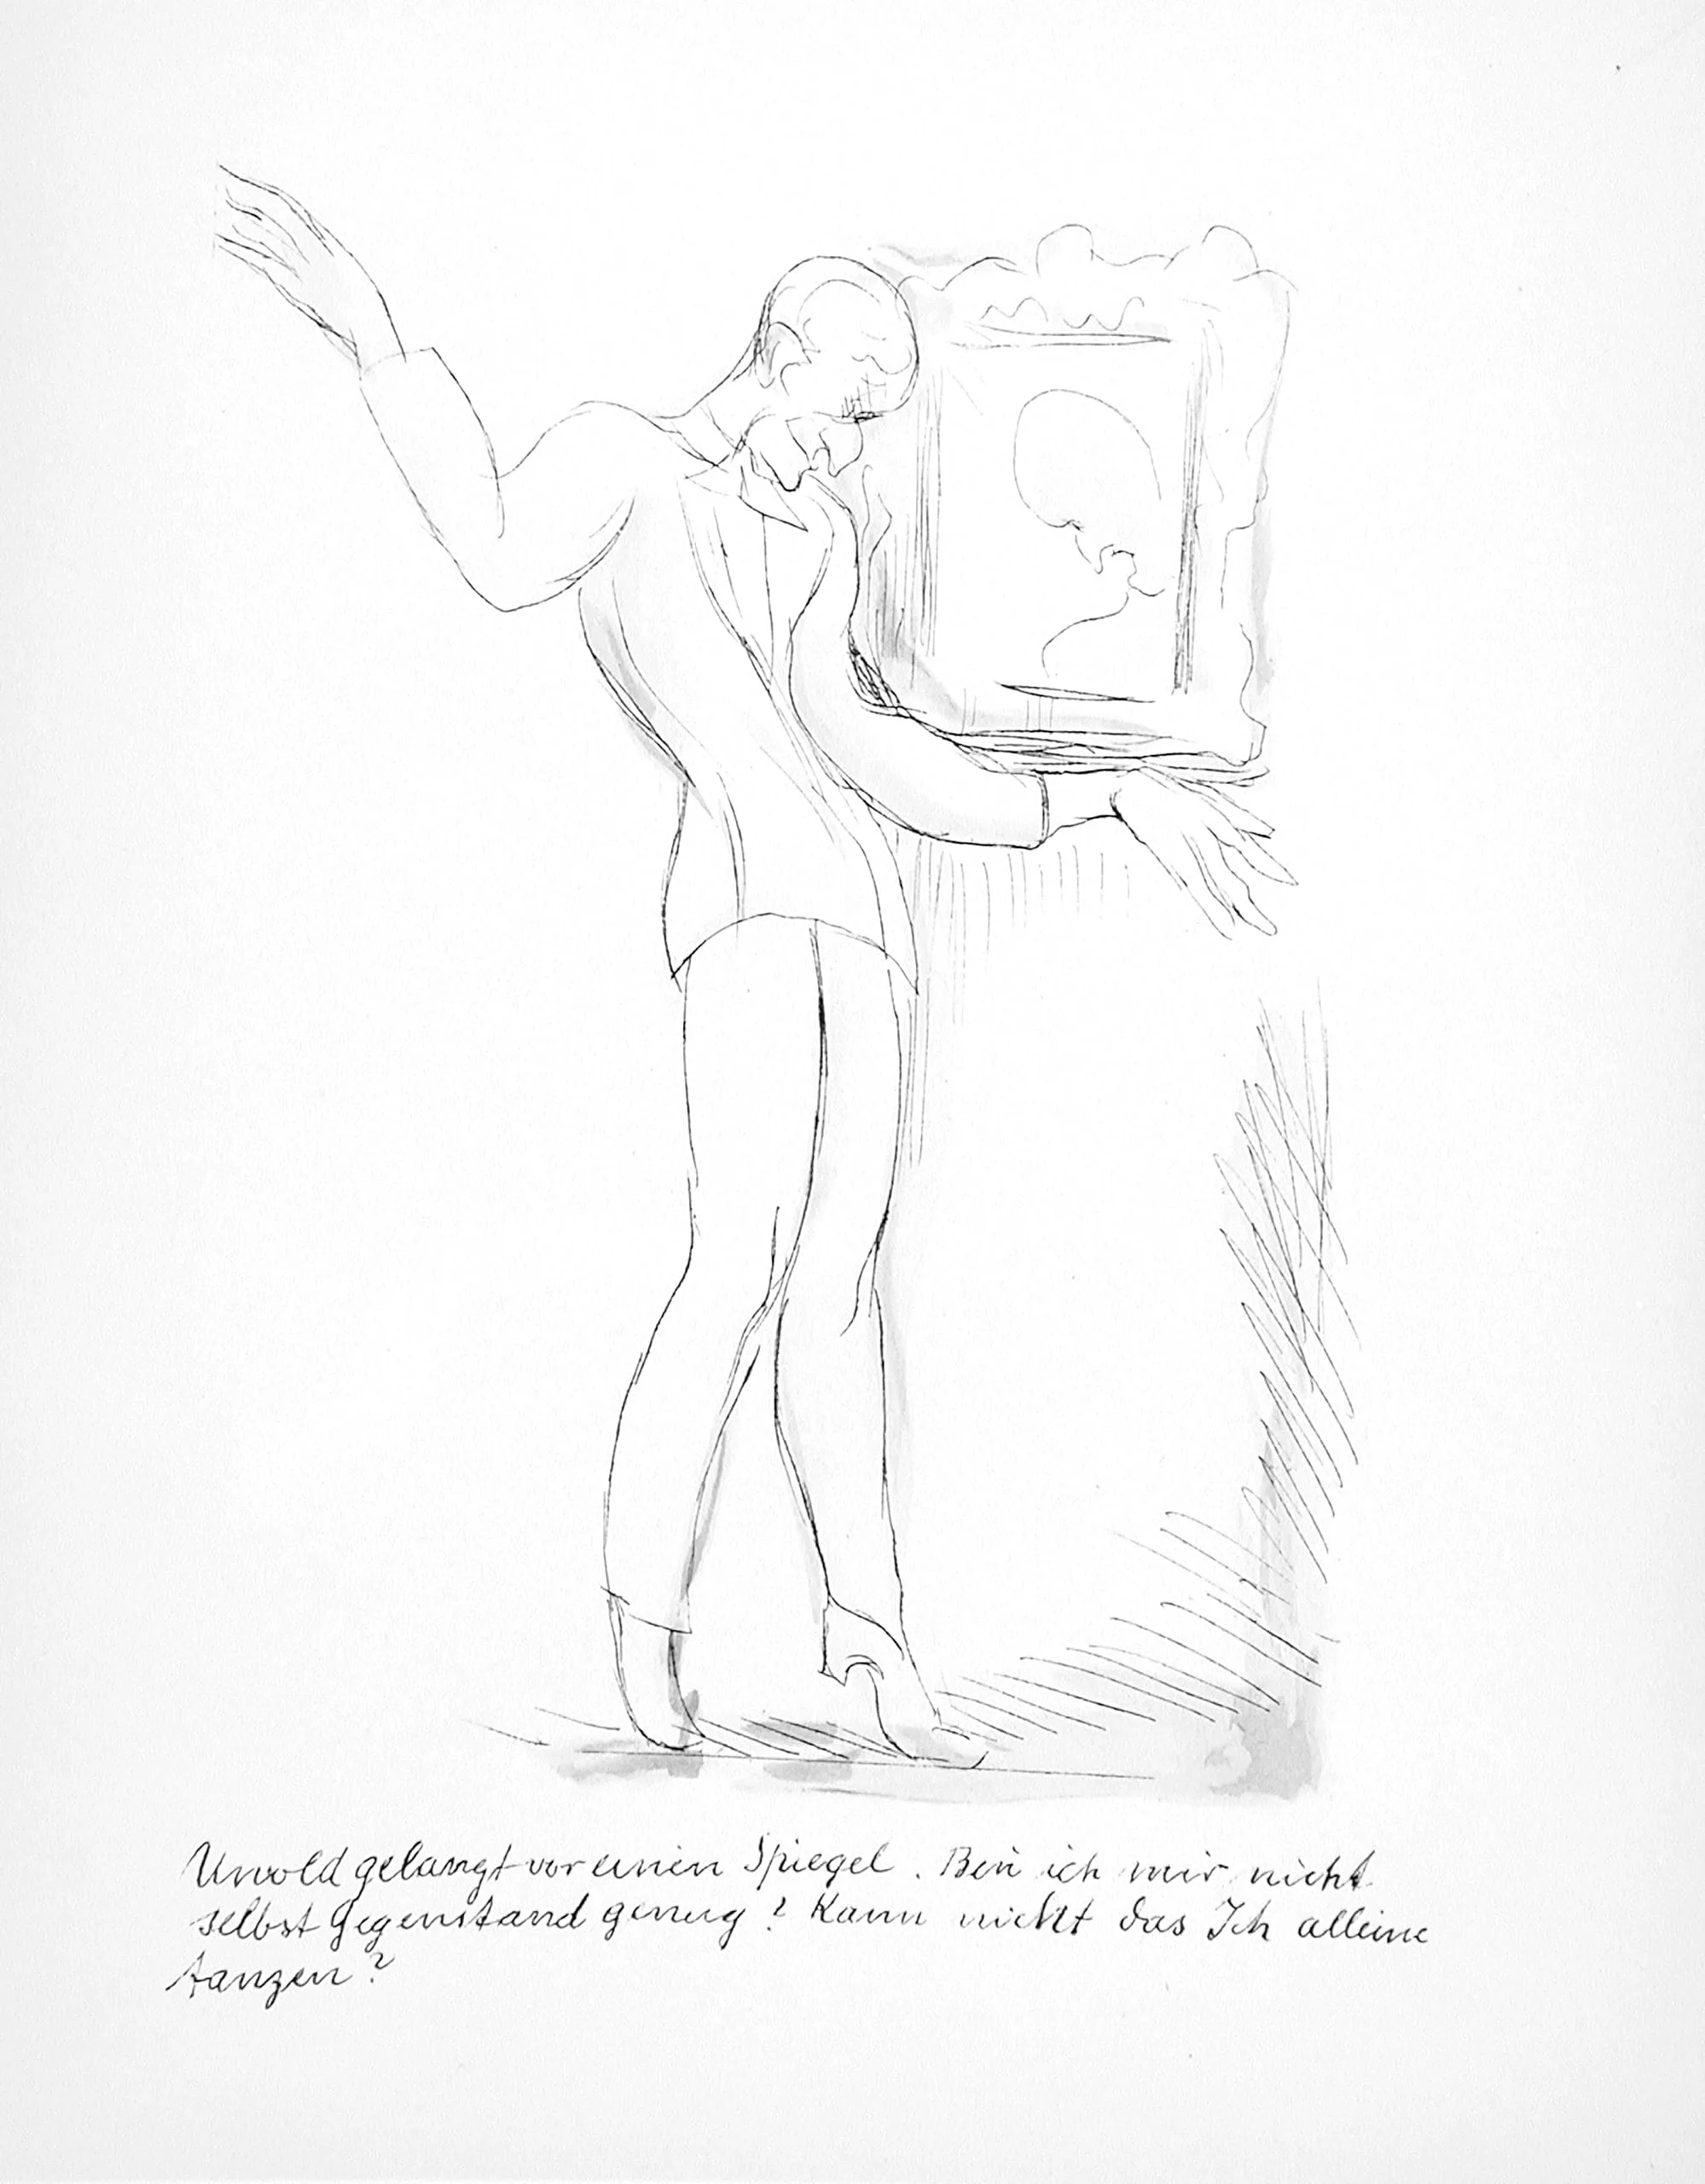 Unold gelangt vor einen Spiegel. Bin ich mir nicht
selbst Gegenstand genug? Kann nicht das Ich alleine
tanzen?